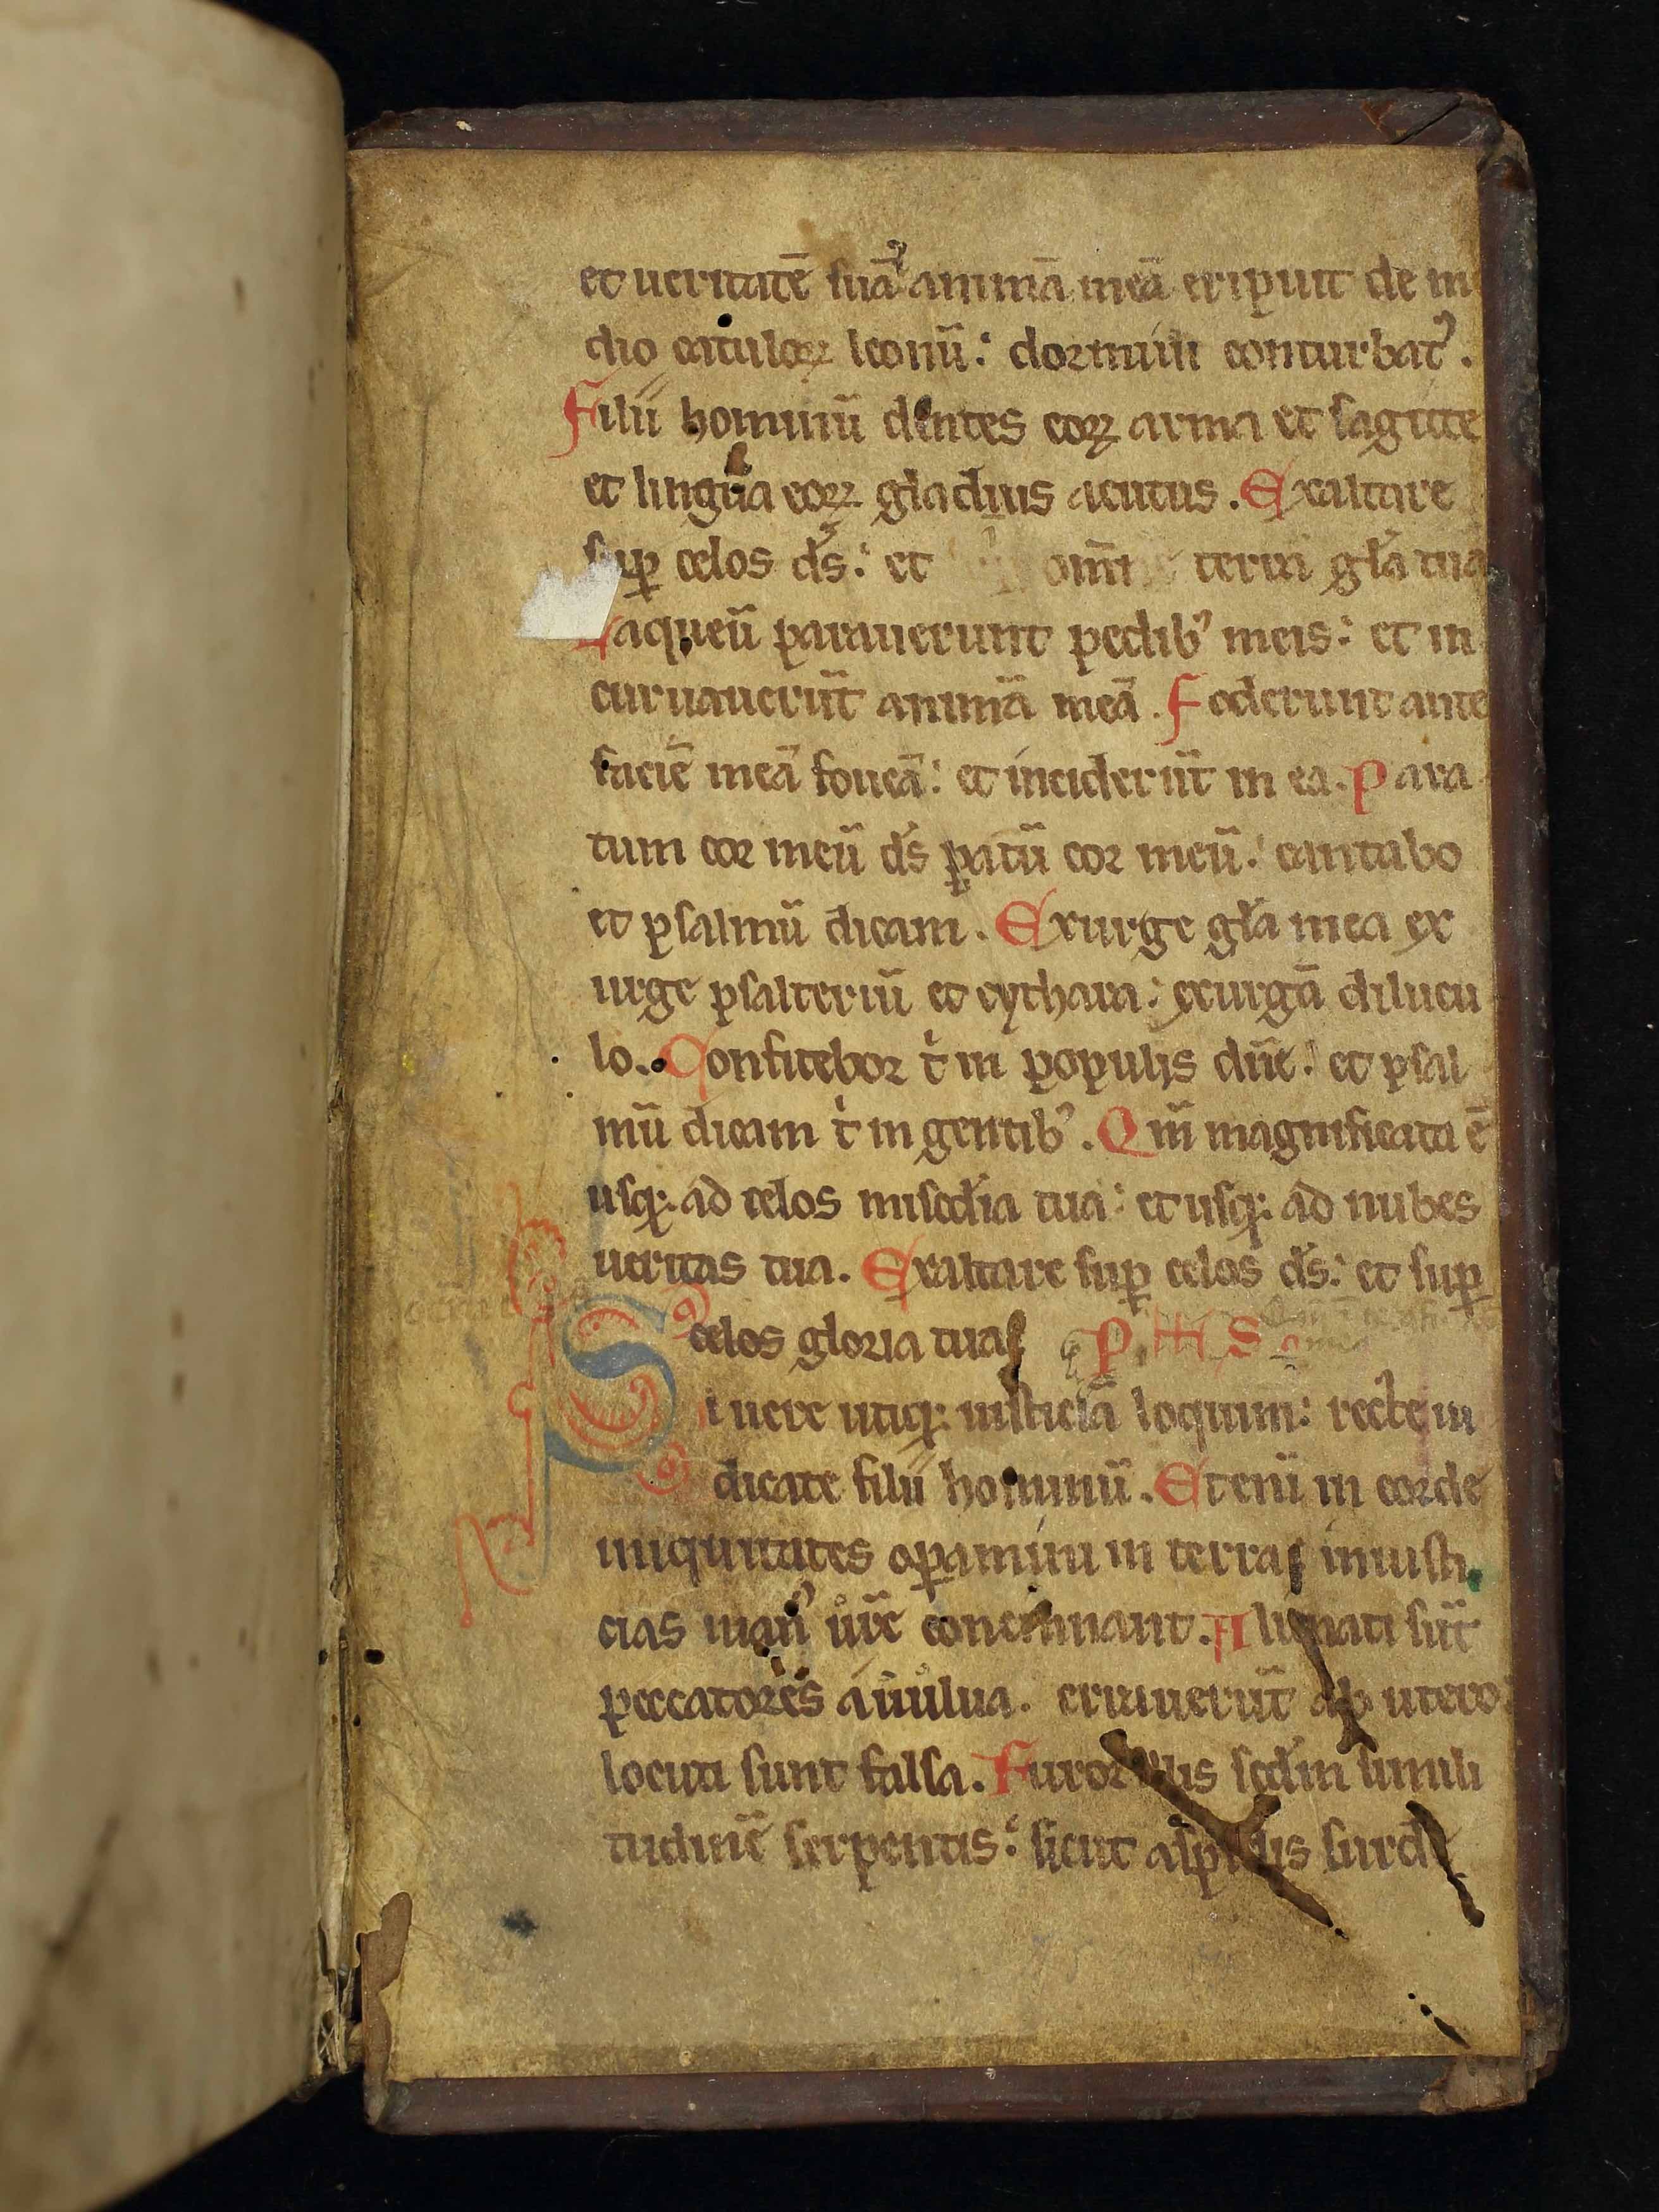 et ueritatē suā animā meā eripuit de m
dio catuloꝝ leonū: dormiui conturbatꝰ.
Filii hominū dentes eoꝝ arma et sagitte
et lingua eoꝝ gladius acutus. Exaltare
suꝑ celos ds̄: et om̄e terrā gl̄a tua
Laqueū parauerunt pedibꝰ meis: et in
curuauerūt animā meā. Foderunt ante
faciē meā foueā: et inciderūt in ea. Para
tum cor meū ds̄ ꝑatū cor meū: cantabo
et psalmū dicam. Exurge gl̄a mea ex
urge psalteriū et cythara: exurgā dilucu
lo. Confitebor t̄ in populis dn̄e: et psal
mū dicam t̄ in gentibꝰ. Qm̄ magnificata ē
usqꝫ ad celos miscd̄ia tua: et usqꝫ ad nubes
ueritas tua. Exaltare suꝑ celos ds̄: et suꝑ
celos gloria tua P S
Si uere utiqꝫ iusticiā loquim̄: recte iu
dicate filii hominū. Eteni in corde
iniquitates oꝑamini in terra iniusti
cias man̄ ur̄e concinnant. Alienati sūt
peccatores a uulua. errauerūt ab utero
locuti sunt falsa. Furor illis scd̄m simili
tudinē serpentis: sicut aspidis surde